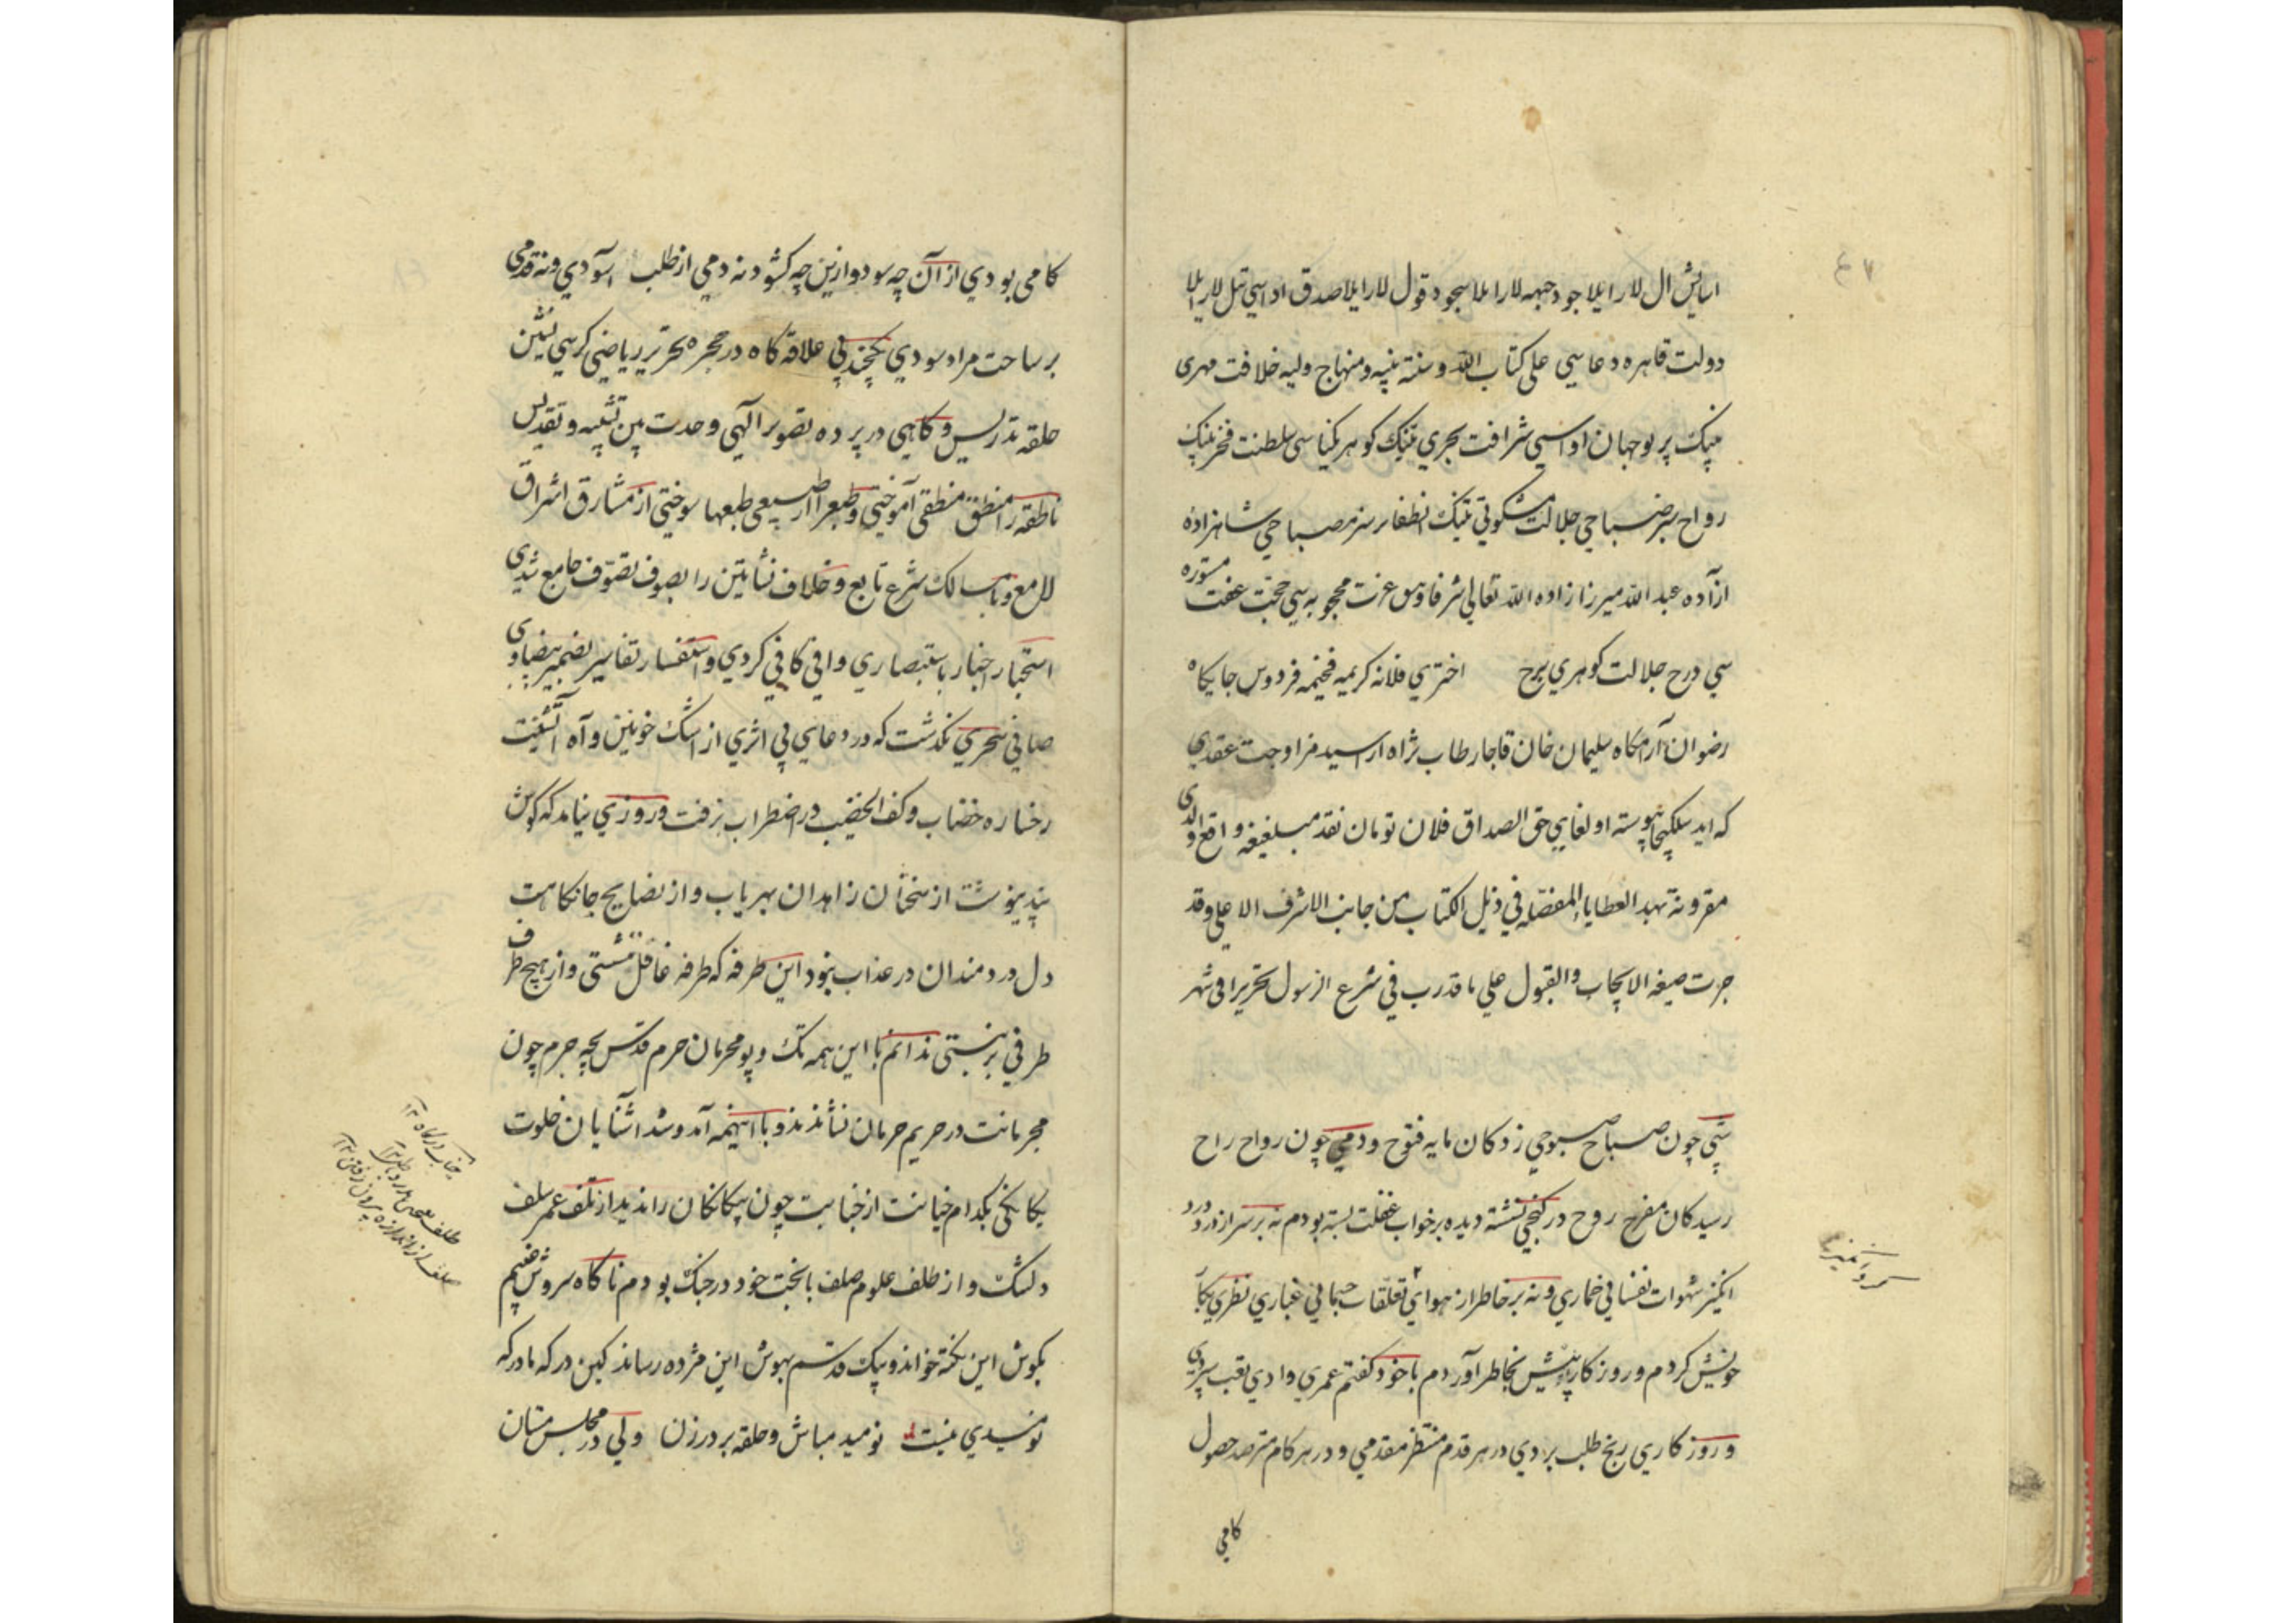 ۴۷
اسایش ال لارا یلا جود جبهه لارا یلا سجود قول لارا یلا صدق اداسی تیل لاریلا
دولت قاهره دعاسی علی کتاب الله و سنة نبیه و منهاج ولیه خلافت مهری
نینک پرتو جهان اداسی شرافت بحری نینک کوهر یکتاسی سلطنت فخر نینک
رواح سر صباحی جلالت مشکوتی نینک مصباحی شاهزاده
ازآده عبد الله میرزا زاده الله تعالی شرفا و عزت محجوبه سی حجت عفت مستوره
سی درج جلالت کوهری برج اختری فلانه کریمه فخیمه فردوس جایکاه
رضوان آرامکاه سلیمان خان قاجار طاب ثراه مزاوجت عقدی
که ابد پیوسته اولغای حق الصداق فلان تومان نقد
مقرونة بهبد العطایاء المفصّله فی ذیل الکتاب من جانب الاشرف الاعلی وقد
جرت صیغه الایجاب والقبول علی ما قدرب فی شرع الرسول تحریرا فی شهر
شبی چون صباح صبوحی زدکان مایه فتوح ودمی چون رواح راح
رسیدکان مفرح روح در کنجی نشسته دیده بر خواب غفلت بسته بودم نه بر سر از درود
انکیز شهوات نفسانی خماری و نه بر خاطر از هوای تعلقات جسمانی غباری نظری بکار
خویش کردم و روزکار پیش بخاطر آوردم باخود کفتم عمری وادی تعب سپردی
و روزکاری رنج طلب بردی در هر قدم منتظر مقدمی و در هر کام مترصد حصول
کامی
کامی بودی از آن چه سود و ازین چه کشود نه دمی از طلب آسودی و نه قدمی
بر ساحت مراد سودی یکچند پی علاقه کاه در حجره تحریر ریاضی کرسی نشین
حلقه تدریس و کاهی در پرده تصویر الهی وحدت بین تشبیه و تقدیس
ناطقه را منطق منطقی آموختی و طبع را از طبیعی طبعها سوختی از مشارق اشراق
لامع و با مسالک شرع تابع و خلاف نشأتین را بصوف تصوّف جامع شدی
استخبار اخبار باستبصاری وافی کافی کردی و استفسار تفاسیر بضمیر بیضاوی
صافی سحری نکذشت که در دعای پی اثری از اشک خونین و آه آتشینت
رخساره خضاب و کف الخضیب در اضطراب نرفت و روزی نیامد که کوش
پند نیوشت از سخنان زاهدان بهره یاب و از نصایح جانکاهت
دل دردمندان در عذاب نبود این طرفه که طرفه غافل ننشستی و از هیچ طرف
طرفی بر نبستی ندانم با این همه تک و پو محرمان حرم قدس بچه جرم چون
مجرمانت در حریم حرمان نشاندند و با اینهمه آمد و شد آشنایان خلوت
یکانکی بکدام خیانت از جنابت چون بیکانکان راندند از تلف عمر سلف
دلتنک و از ظلف علوم صلف با بخت خود در جنک بودم ناکاه سروش غیبم
بکوش این نکته خواند و پیک قدسم بهوش این مژده رساند کین درکه ما درکه
نومیدی نیست نومید مباش و حلقه بر در زن ولی در مجلس مستان